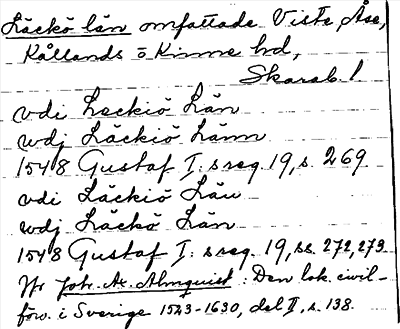 Läckö län omfattade Viste, Åse,
Kållands o Kinne hd,
Skarab. l
vdi Leckiö Län
wdj Läckiö Länn
1548 Gustaf I: s reg. 19, s. 269
vdi Läckiö Län
wdj Läckö Län
1548 Gustaf I: s reg. 19, ss. 272, 273
Jfr Joh. Ax. Almquist: Den lok. civil-
förv. i Sverige 1523-1630, del II, s. 138.